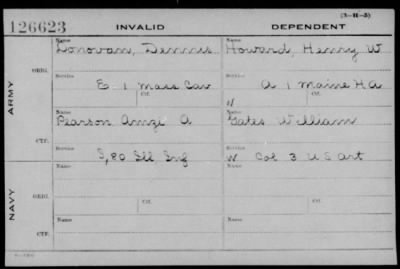 (3-11-5)
126623 INVALID DEPENDENT
Name Name
Donovan, Dennis Howard, Henry W
ORIG.
Service Service
E 1 Mass Cav A 1 Maine H A
Ctf. Ctf.
ARMY
Name Name
Pearson Amzi A Gates William
CTF.
Service Service
I, 80 Ill Inf W Col 3 U S Art
Name Name
ORIG.
Ctf. Ctf.
NAVY
Name Name
CTF.